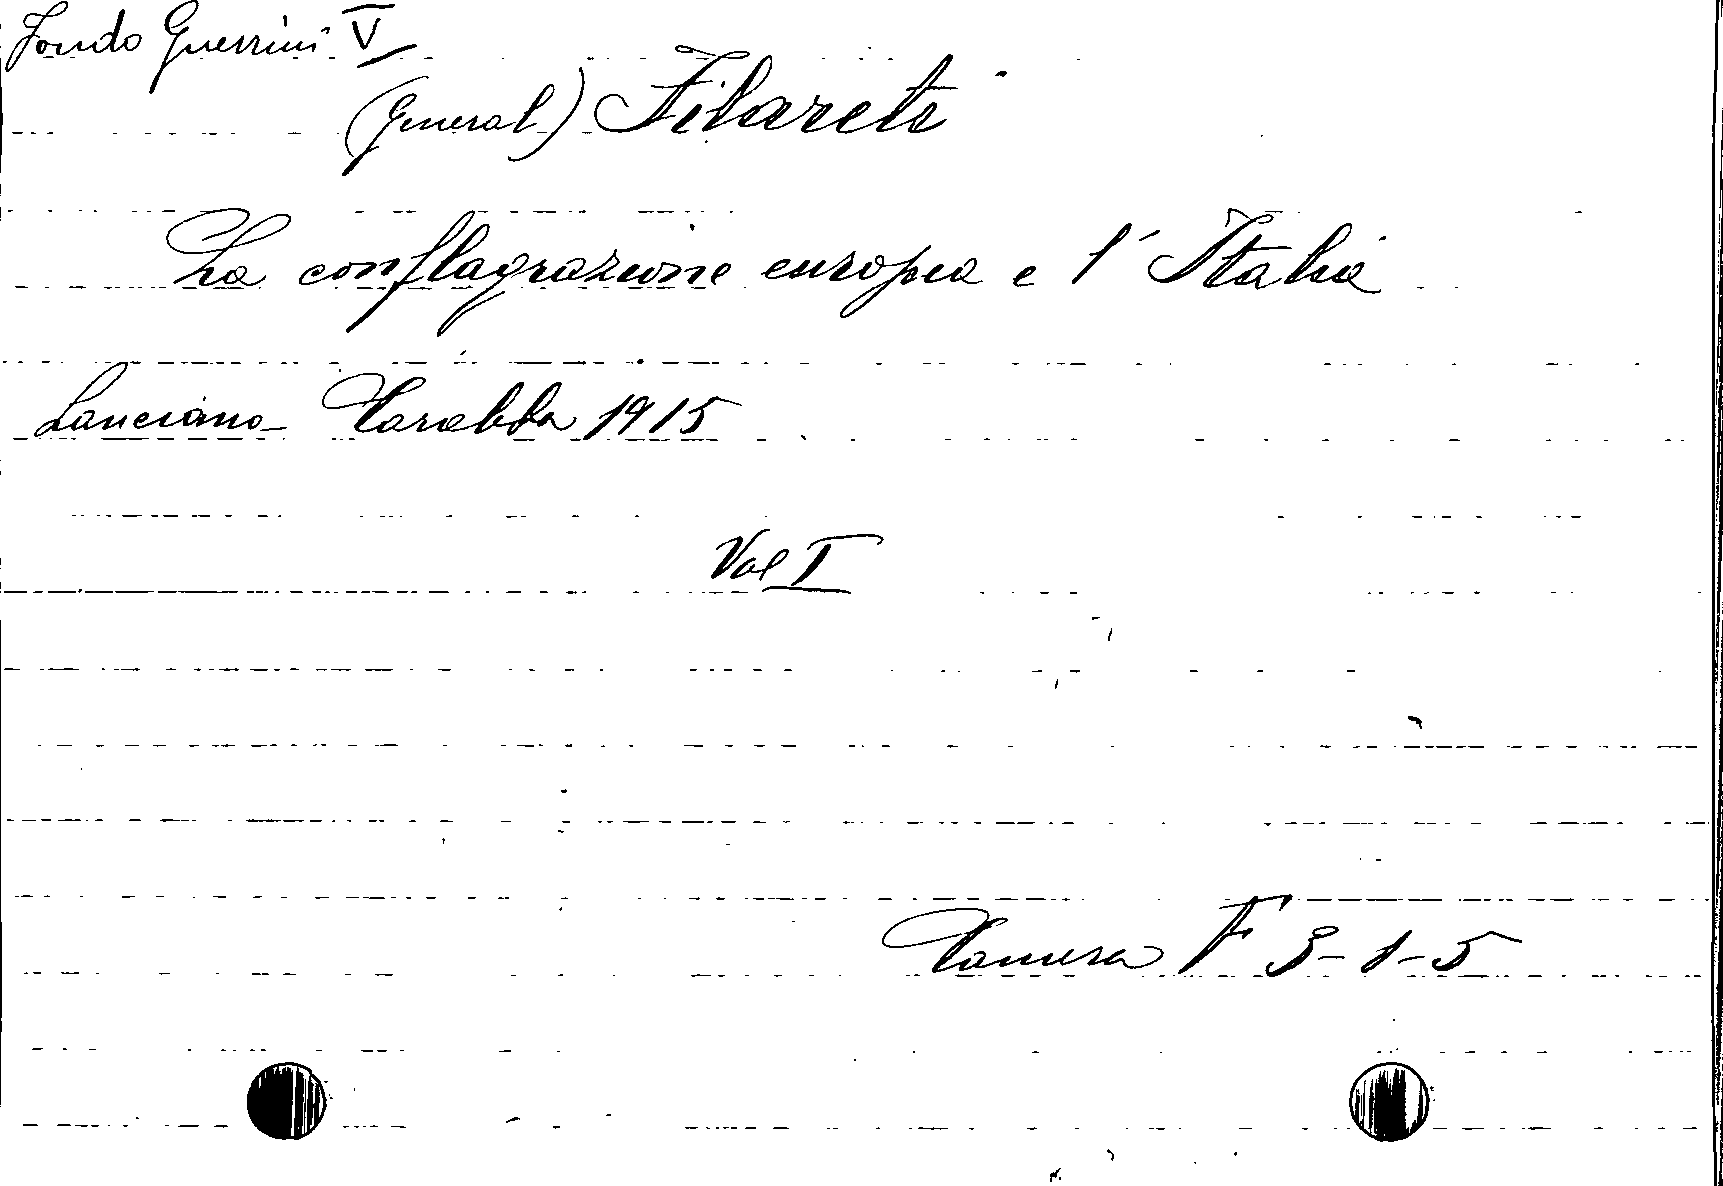 Fondo Guerrini V
(General) Filareti
La conflagrazione europea e l'Italia
Lanciano Carabba 1915
Vol I
Camera F 3-1-5